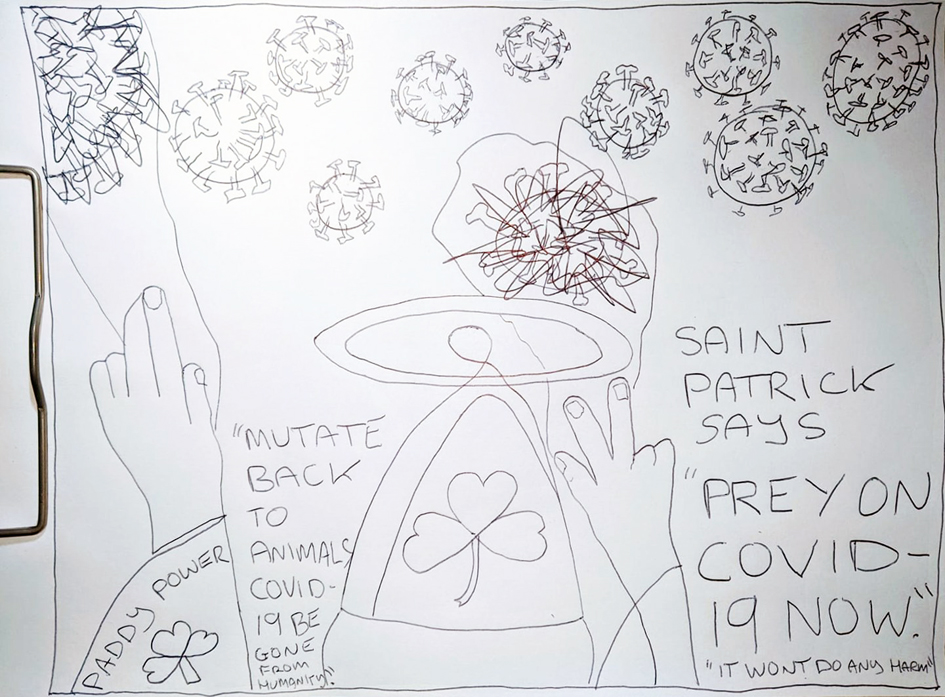 SAINT
PATRICK
SAYS
"PREY ON
COVID-
19 NOW."
"IT WONT DO ANY HARM"
"MUTATE
BACK
TO
ANIMALS
COVID-
19 BE
GONE
FROM
HUMANITY!"
PADDY POWER